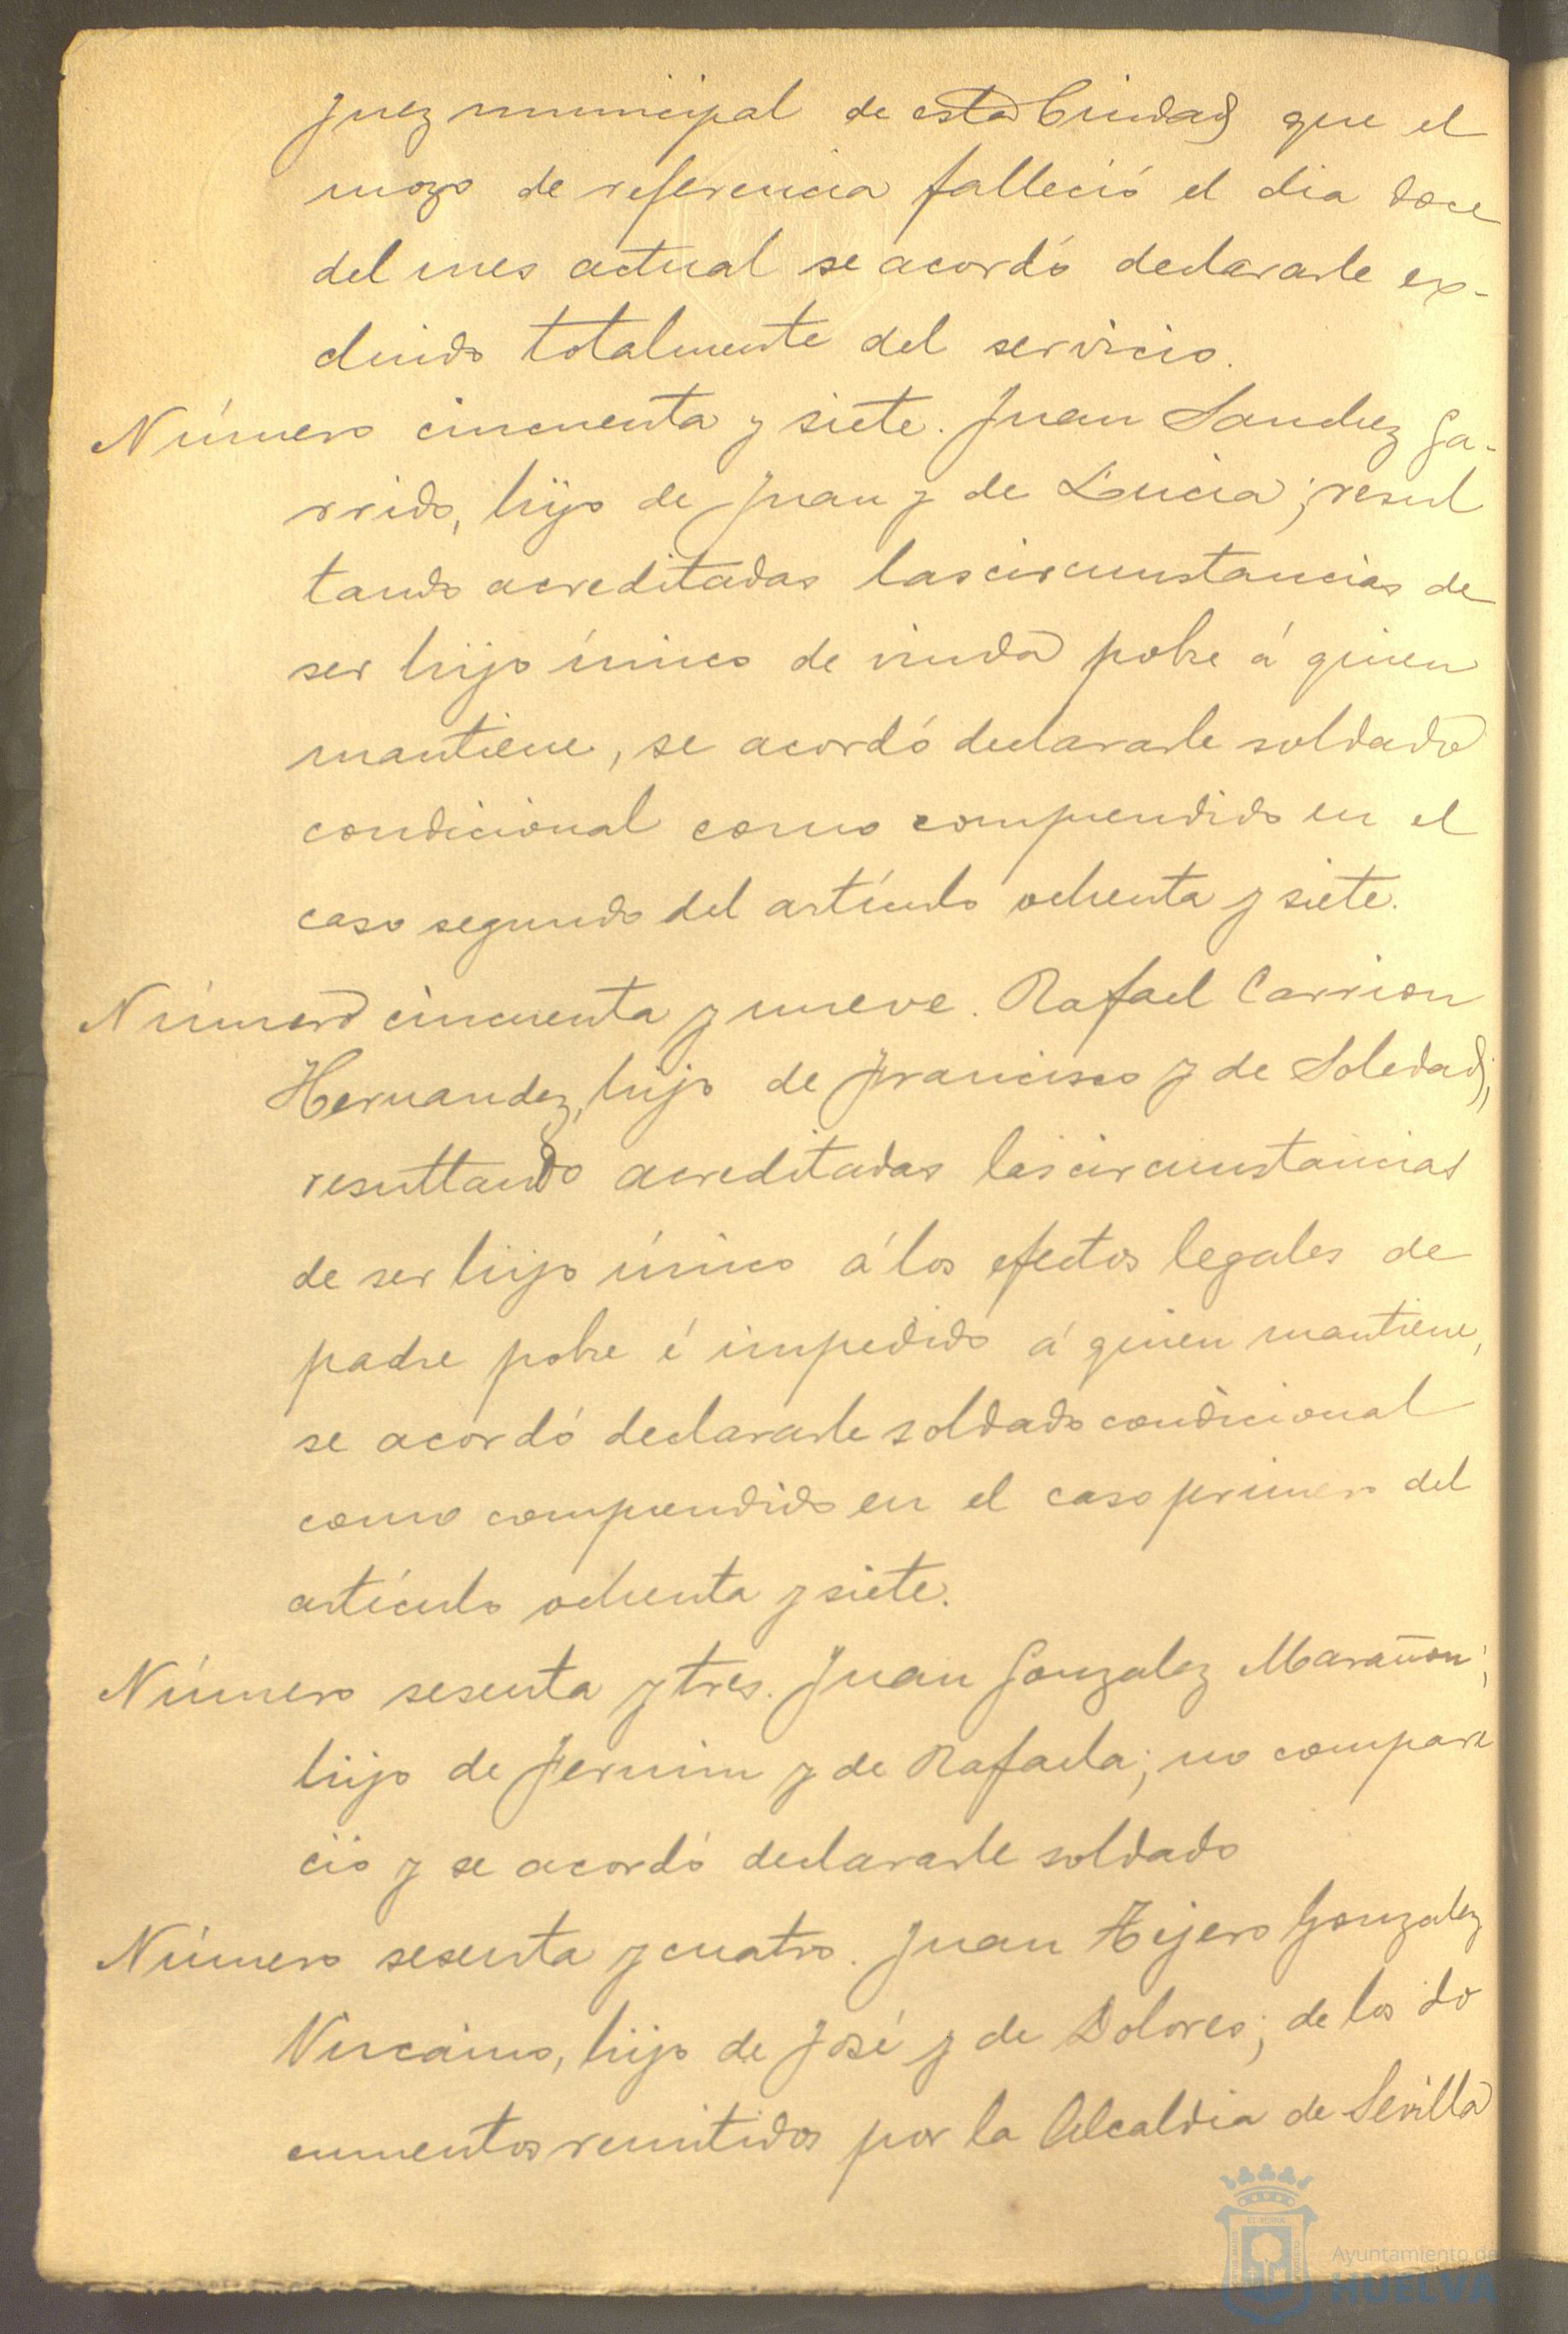 Juez municipal de esta Ciudad que el
mozo de referencia falleció el dia doce
del mes actual se acordó declararle ex-
cluido totalmente del servicio.
Número cincuenta y siete. Juan Sanchez Ga-
rrido, hijo de Juan y de Lucia; resul
tando acreditadas las circunstancias de
ser hijo único de viuda pobre á quien
mantiene, se acordó declararle soldado
condicional como comprendido en el
caso segundo del artículo ochenta y siete.
Número cincuenta y nueve. Rafael Carrion
Hernandez, hijo de Francisco y de Soledad;
resultando acreditadas las circunstancias
de ser hijo único á los efectos legales de
padre pobre é impedido á quien mantiene,
se acordó declararle soldado condicional
como comprendido en el caso primero del
artículo ochenta y siete.
Número sesenta y tres. Juan Gonzalez Marañon;
hijo de Fermin y de Rafaela; no compare
ció y se acordó declararle soldado
Número sesenta y cuatro. Juan Tejero Gonzalez
Vizcaino, hijo de José y de Dolores; de los do
cumentos remitidos por la Alcaldia de Sevilla
Ayuntamiento de
HUELVA